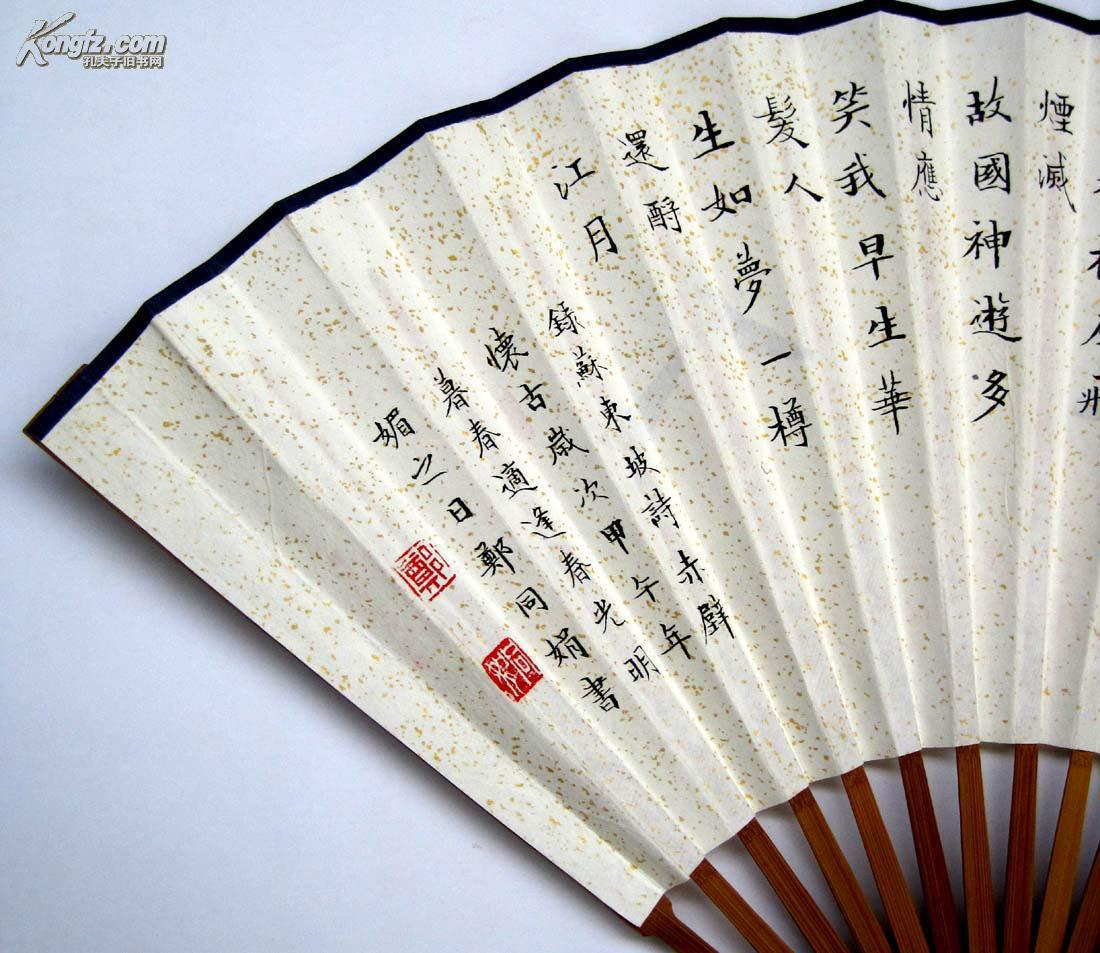 煙滅
故國神遊多
情應
笑我早生華
髮人
生如夢一樽
還酹
江月
錄蘇東坡詩赤壁
懷古歲次甲午年
暮春適逢春光明
媚之日鄭同娟書
Kongfz.com
孔夫子旧书网